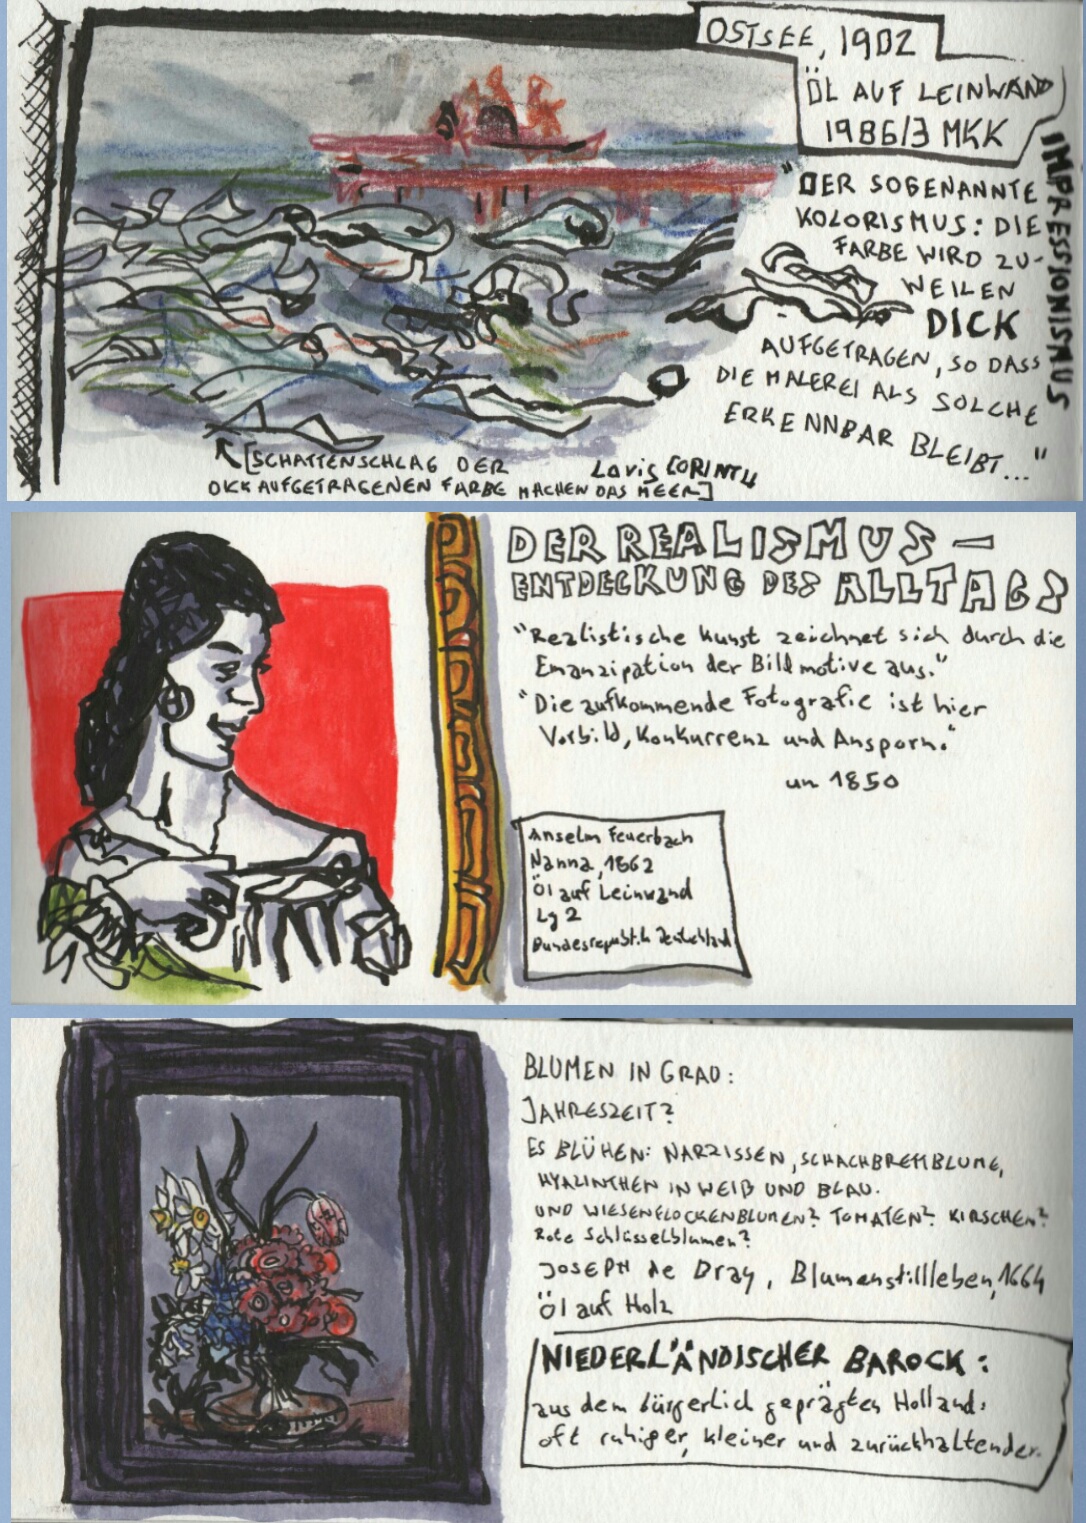 OSTSEE, 1902
ÖL AUF LEINWAND
1986/3 MKK
IMPRESSIONISMUS
"DER SOGENANNTE
KOLORISMUS: DIE
FARBE WIRD ZU-
WEILEN
DICK
AUFGETRAGEN, SO DASS
DIE MALEREI ALS SOLCHE
ERKENNBAR BLEIBT..."
[SCHATTENSCHLAG DER
DICK AUFGETRAGENEN FARBE MACHEN DAS MEER]
Lovis CORINTH
DER REALISMUS –
ENTDECKUNG DES ALLTAGS
"Realistische Kunst zeichnet sich durch die
Emanzipation der Bildmotive aus."
"Die aufkommende Fotografie ist hier
Vorbild, Konkurrenz und Ansporn."
um 1850
Anselm Feuerbach
Nanna, 1862
Öl auf Leinwand
Lg 2
Bundesrepublik Deutschland
BLUMEN IN GRAU:
JAHRESZEIT?
ES BLÜHEN: NARZISSEN, SCHACHBRETTBLUME,
HYAZINTHEN IN WEIß UND BLAU.
UND WIESENFLOCKENBLUMEN? TOMATEN? KIRSCHEN?
Rote Schlüsselblumen?
JOSEPH de Bray, Blumenstillleben, 1664
Öl auf Holz
NIEDERLÄNDISCHER BAROCK:
aus dem bürgerlich geprägten Holland:
oft ruhiger, kleiner und zurückhaltender.